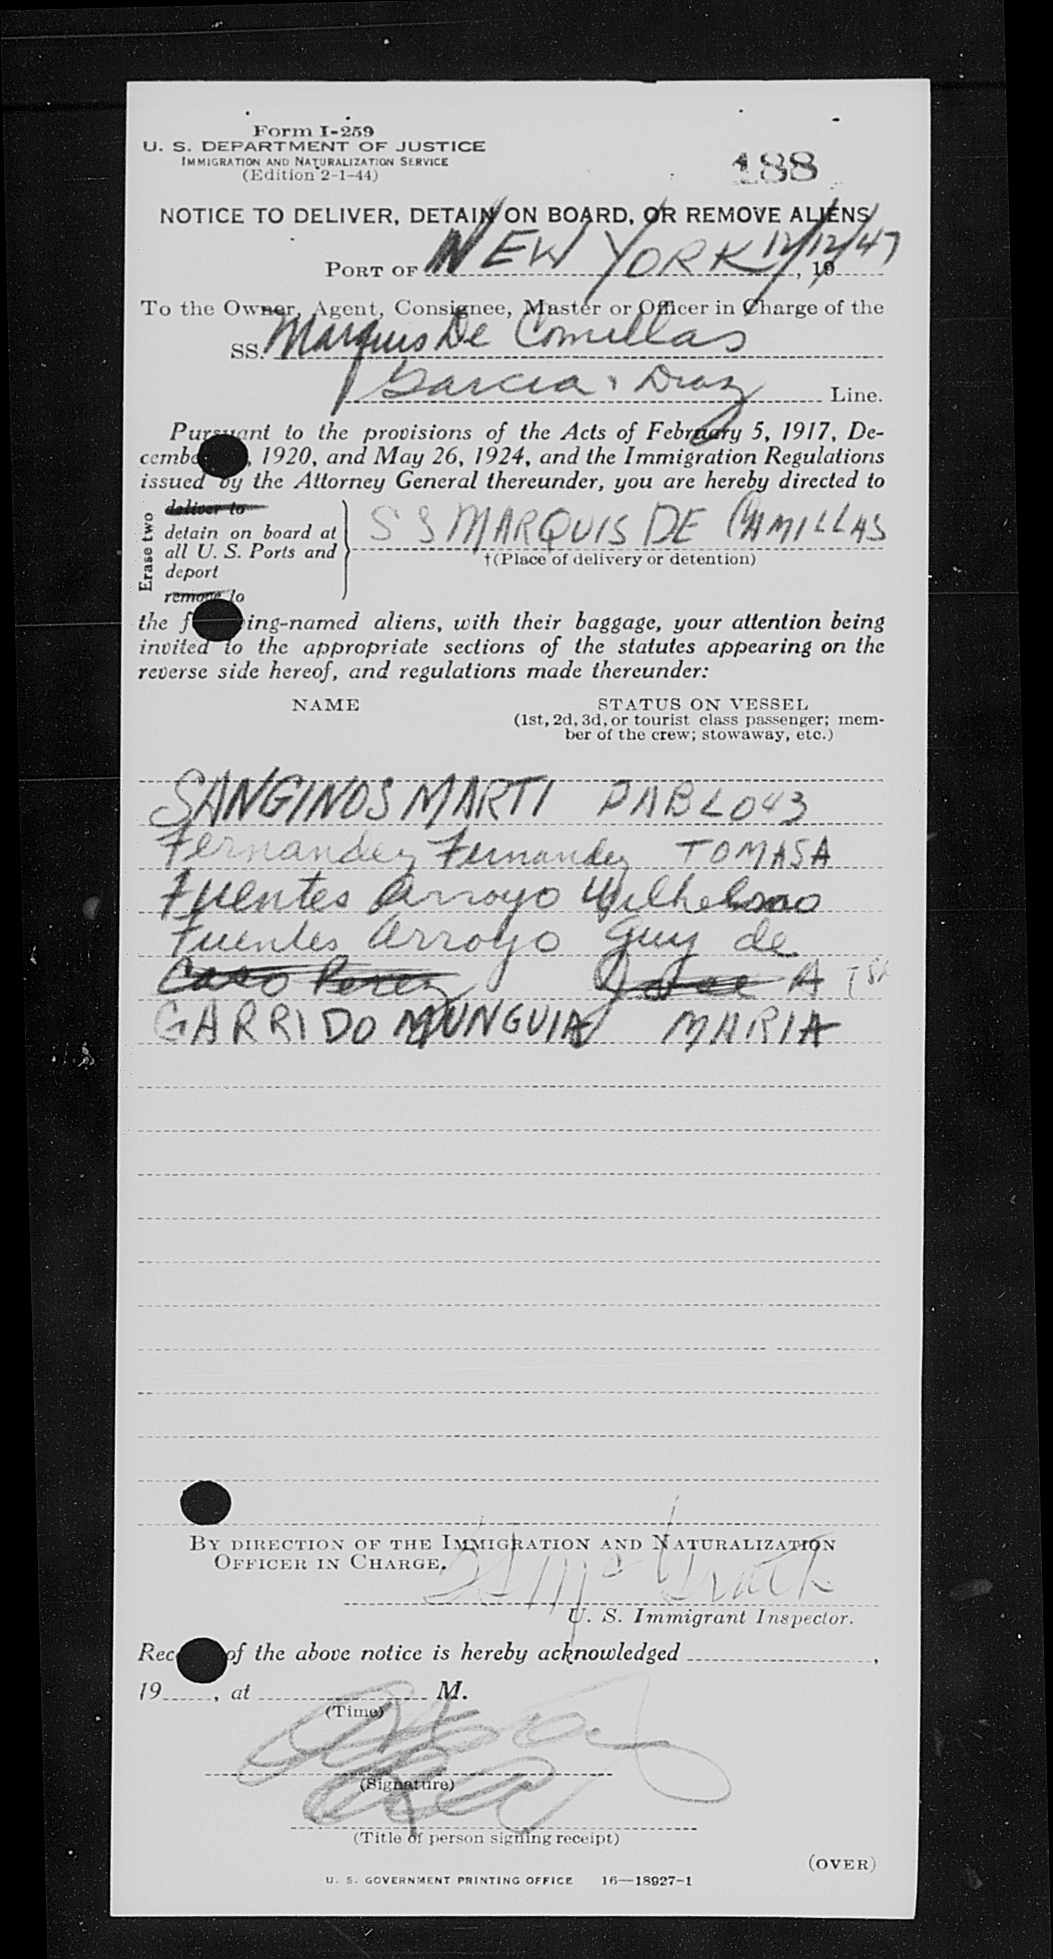 Form I-259
U. S. DEPARTMENT OF JUSTICE
IMMIGRATION AND NATURALIZATION SERVICE
(Edition 2-1-44)
188
NOTICE TO DELIVER, DETAIN ON BOARD, OR REMOVE ALIENS
PORT OF NEW YORK 12/12/47, 19
To the Owner, Agent, Consignee, Master or Officer in Charge of the
SS. Marquis De Comillas
Garcia & Diaz Line.
Pursuant to the provisions of the Acts of February 5, 1917, De-
cembe , 1920, and May 26, 1924, and the Immigration Regulations
issued by the Attorney General thereunder, you are hereby directed to
Erase two
deliver to
detain on board at
all U. S. Ports and
deport
remove to
SS MARQUIS DE CAMILLAS
†(Place of delivery or detention)
the f ing-named aliens, with their baggage, your attention being
invited to the appropriate sections of the statutes appearing on the
reverse side hereof, and regulations made thereunder:
NAME STATUS ON VESSEL
(1st, 2d, 3d, or tourist class passenger; mem-
ber of the crew; stowaway, etc.)
SANGINOS MARTI PABLO 43
Fernandez Fernandez TOMASA
Fuentes Arroyo
Fuentes Arroyo Guy de
Caso Perez A
GARRIDO MUNGUIA MARIA
BY DIRECTION OF THE IMMIGRATION AND NATURALIZATION
OFFICER IN CHARGE.
U. S. Immigrant Inspector.
Rec of the above notice is hereby acknowledged ,
19 , at M.
(Time)
(Signature)
(Title of person signing receipt)
(OVER)
U. S. GOVERNMENT PRINTING OFFICE 16—18927-1